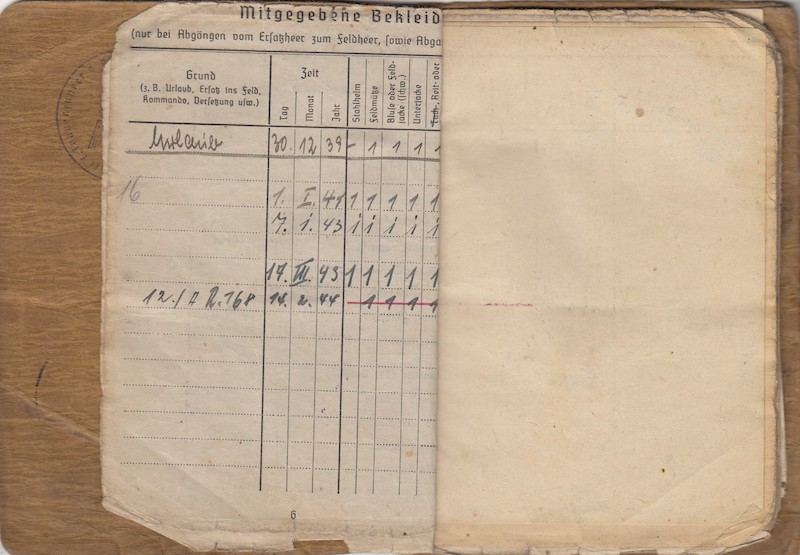 Mitgegebene Bekleid
(nur bei Abgängen vom Ersatzheer zum Feldheer, sowie Abga
Grund
(z. B. Urlaub, Ersatz ins Feld,
Kommando, Versetzung usw.)
Zeit
Tag Monat Jahr
Stahlhelm
Feldmütze
Bluse oder Feld-
jacke (schw.)
Unterjacke
Tuch-, Reit- oder
Urlaub 30. 12 39 - 1 1 1 1
16
1. I. 41 1 1 1 1 1
7. i. 43 i i i i i
17. III. 43 1 1 1 1 1
12./A R. 168 14. 2. 44 1 1 1 1
6